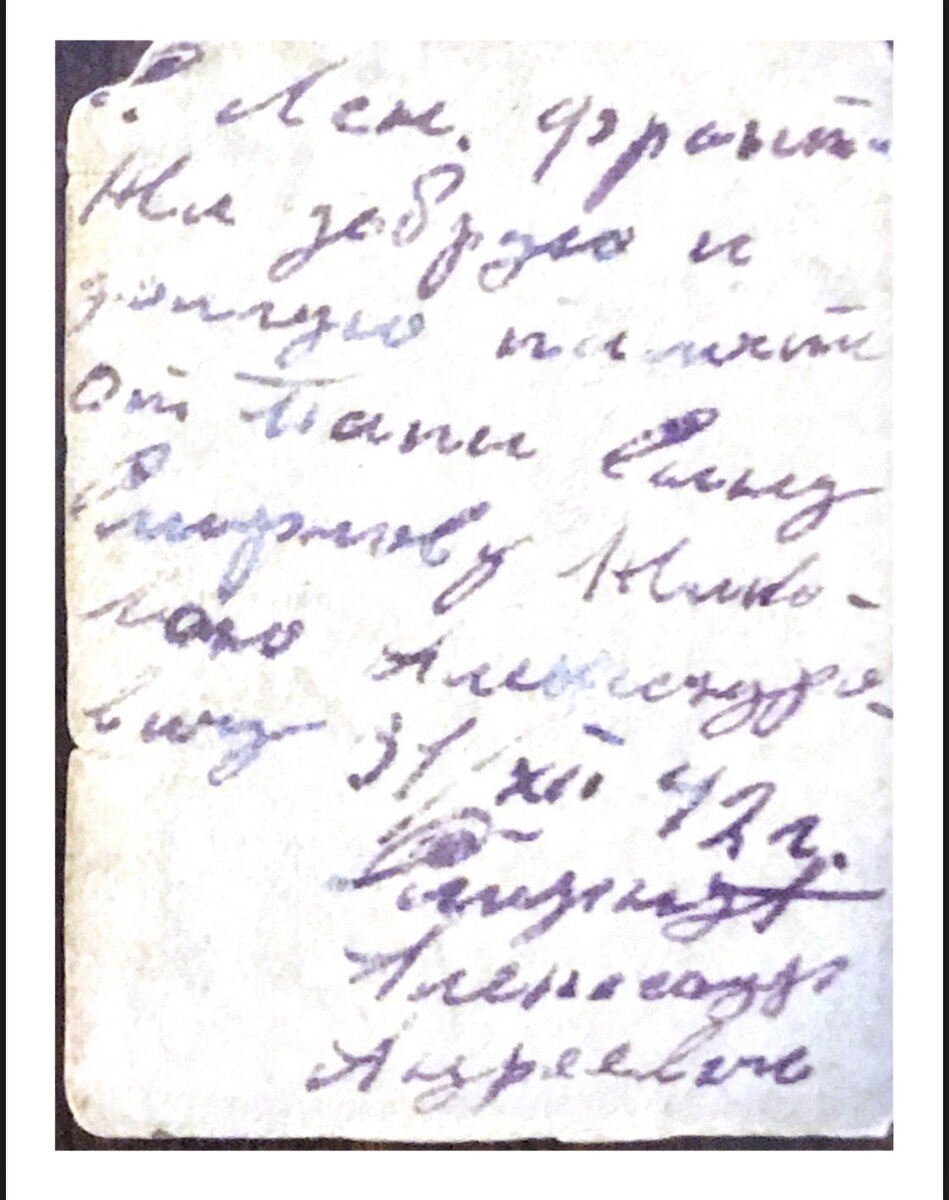 С. Лен. фронт
На добрую и
долгую память
От Папы Сыну
Смирнову Нико-
лаю Александро-
вичу
31/XII 42 г.
Смирнов
Александр
Андреевич